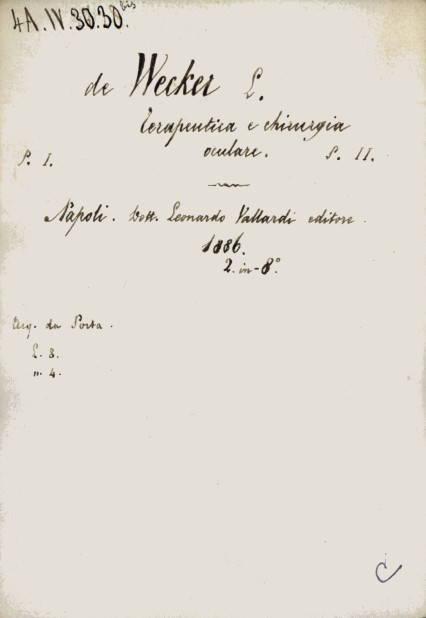 4A.IV.30.30 bis
de Wecker L.
Terapeutica e chirurgia
oculare.
P. I. P. II.
Napoli. Dott. Leonardo Vallardi editore.
1886.
2. in-8°
Acq. da Porta.
L. 8.
n. 4.
C